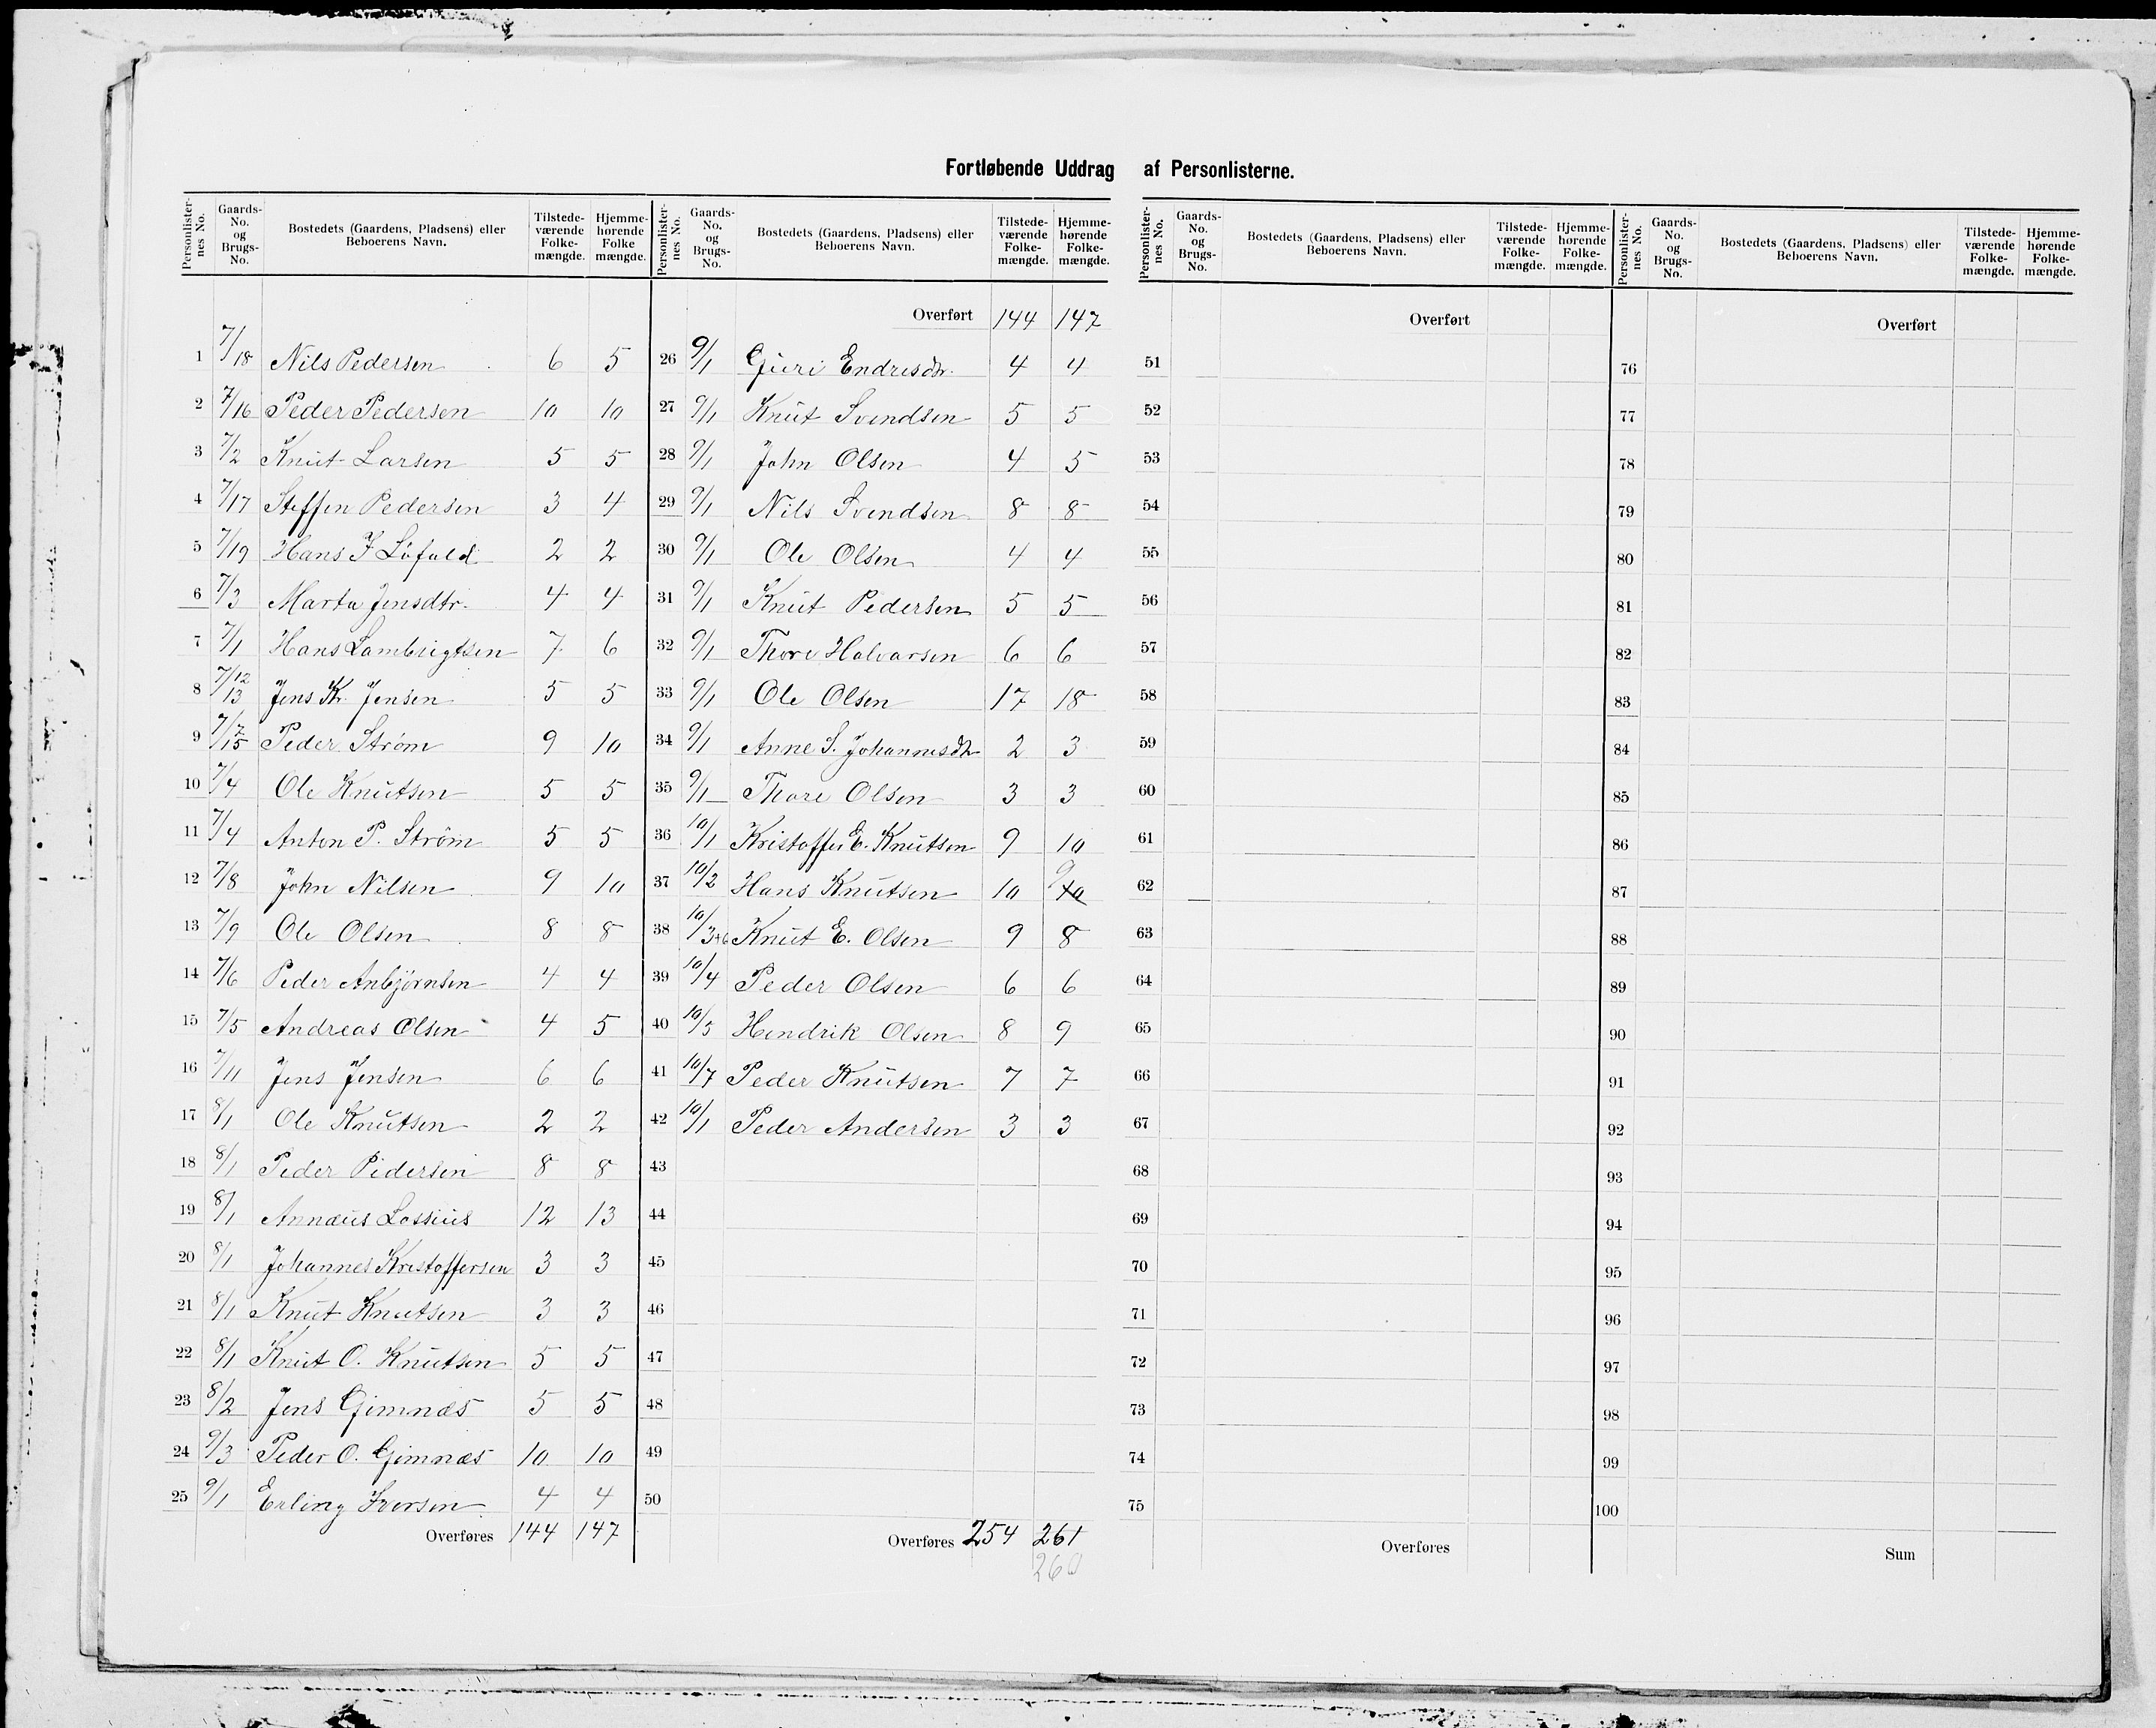 Fortløbende Uddrag af Personlisterne.
Personlisternes No. Gaards-No. og Brugs-No. Bostedets (Gaardens, Pladsens) eller Beboerens Navn. Tilstedeværende Folkemængde. Hjemmehørende Folkemængde.
1 7/18 Nils Pedersen 6 5
2 7/16 Peder Pedersen 10 10
3 7/2 Knut Larsen 5 5
4 7/17 Steffen Pedersen 3 4
5 7/19 Hans J Løfald 2 2
6 7/3 Marta Jensdtr. 4 4
7 7/1 Hans Lambrigtsen 7 6
8 7/12 13 Jens Kr. Jensen 5 5
9 7/7 15 Peder Strøm 9 10
10 7/4 Ole Knutsen 5 5
11 7/4 Anton P. Strøm 5 5
12 7/8 John Nilsen 9 10
13 7/9 Ole Olsen 8 8
14 7/6 Peder Anbjørnsen 4 4
15 7/5 Andreas Olsen 4 5
16 7/11 Jens Jensen 6 6
17 8/1 Ole Knutsen 2 2
18 8/1 Peder Pedersen 8 8
19 8/1 Annæus Lossius 12 13
20 8/1 Johannes Kristoffersen 3 3
21 8/1 Knut Knutsen 3 3
22 8/1 Knut O. Knutsen 5 5
23 8/2 Jens Gimnæs 5 5
24 9/3 Peder O. Gimnæs 10 10
25 9/1 Erling Iversen 4 4
Overføres 144 147
Personlisternes No. Gaards-No. og Brugs-No. Bostedets (Gaardens, Pladsens) eller Beboerens Navn. Tilstedeværende Folkemængde. Hjemmehørende Folkemængde.
Overført 144 147
26 9/1 Guri Endresdtr. 4 4
27 9/1 Knut Svendsen 5 5
28 9/1 John Olsen 4 5
29 9/1 Nils Svendsen 8 8
30 9/1 Ole Olsen 4 4
31 9/1 Knut Pedersen 5 5
32 9/1 Thore Halvarsen 6 6
33 9/1 Ole Olsen 17 18
34 9/1 Anne S. Johannesdtr 2 3
35 9/1 Thore Olsen 3 3
36 10/1 Kristoffer E. Knutsen 9 10
37 10/2 Hans Knutsen 10 9 10
38 10/3+6 Knut E. Olsen 9 8
39 10/4 Peder Olsen 6 6
40 10/5 Hendrik Olsen 8 9
41 10/7 Peder Knutsen 7 7
42 10/1 Peder Andersen 3 3
43
44
45
46
47
48
49
50
Overføres 254 261
260
Personlisternes No. Gaards-No. og Brugs-No. Bostedets (Gaardens, Pladsens) eller Beboerens Navn. Tilstedeværende Folkemængde. Hjemmehørende Folkemængde.
Overført
51
52
53
54
55
56
57
58
59
60
61
62
63
64
65
66
67
68
69
70
71
72
73
74
75
Overføres
Personlisternes No. Gaards-No. og Brugs-No. Bostedets (Gaardens, Pladsens) eller Beboerens Navn. Tilstedeværende Folkemængde. Hjemmehørende Folkemængde.
Overført
76
77
78
79
80
81
82
83
84
85
86
87
88
89
90
91
92
93
94
95
96
97
98
99
100
Sum